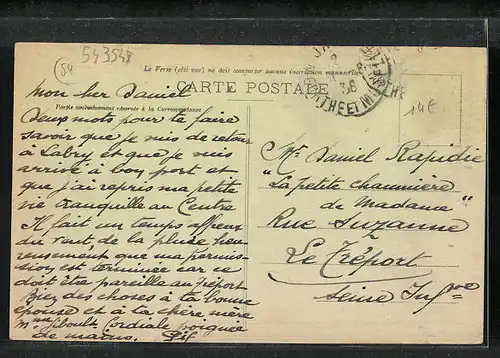 54
543548
Le Verso (côté vue) ne doit comporter aucune inscription manuscrite
CARTE POSTALE
Partie exclusivement réservée à la Correspondance
MEURTHE ET M
38
14€
Mon cher Daniel
Deux mots pour te faire
savoir que je suis de retour
à Labry et que je suis
arrivé à bon port et
que j'ai repris ma petite
vie tranquille au Centre
Il fait un temps affreux
du vent, de la pluie heu
reusement que ma permis-
sion est terminée car ce
doit être pareille au Tréport
Bien des choses à ta bonne
épouse et à ta chère mère
Cordiale poignée
de mains.
Mr Daniel Rapidie
"La petite chaumière
de Madame"
Rue Suzanne
Le Tréport
Seine Infre